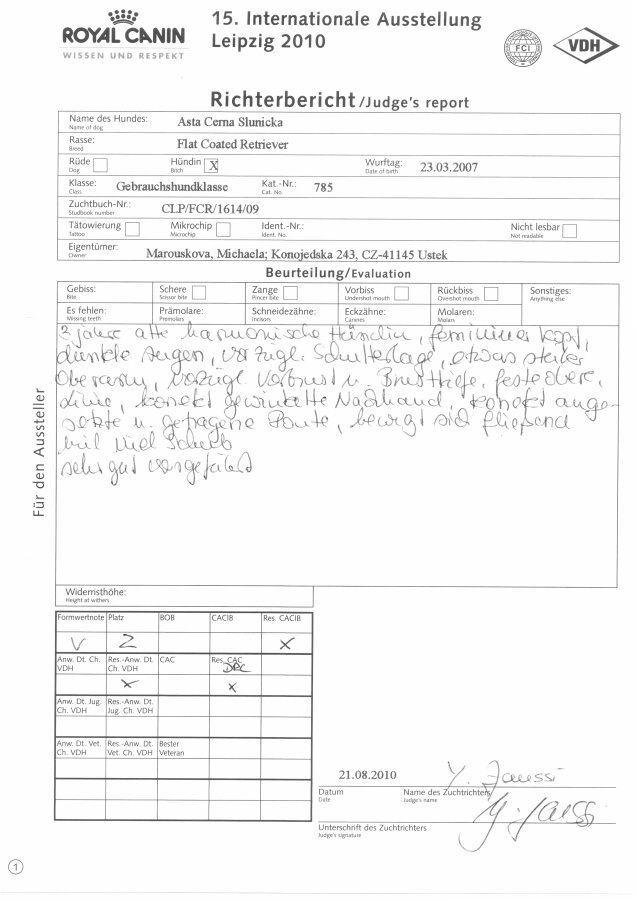 ROYAL CANIN
WISSEN UND RESPEKT
15. Internationale Ausstellung
Leipzig 2010
FCI
VDH
Richterbericht/Judge's report
Name des Hundes: Asta Cerna Slunicka
Name of dog
Rasse: Flat Coated Retriever
Breed
Rüde Hündin X Wurftag: 23.03.2007
Dog Bitch Date of birth
Klasse: Gebrauchshundklasse Kat.-Nr.: 785
Class Cat. No.
Zuchtbuch-Nr.: CLP/FCR/1614/09
Studbook number
Tätowierung Mikrochip Ident.-Nr.: Nicht lesbar
Tattoo Microchip Ident. No. Not readable
Eigentümer: Marouskova, Michaela; Konojedska 243, CZ-41145 Ustek
Owner
Beurteilung/Evaluation
Gebiss: Schere Zange Vorbiss Rückbiss Sonstiges:
Bite Scissor bite Pincer bite Undershot mouth Overshot mouth Anything else
Es fehlen: Prämolare: Schneidezähne: Eckzähne: Molaren:
Missing teeth Premolars Incisors Canines Molars
3 jahre alte harmonische Hündin, femininer Kopf,
dunkle Augen, vorzügl. Schulterlage, etwas steiler
Oberarm, vorzügl. Vorbrust u. Brusttiefe, feste obere
Linie, korrekt gewinkelte Nachhand, korrekt ange-
setzte u. getragene Rute, bewegt sich fließend
mit viel Schub
sehr gut vorgeführt
Für den Aussteller
Widerristhöhe:
Height at withers
Formwertnote Platz BOB CACIB Res. CACIB
V 2 X
Anw. Dt. Ch. VDH Res.-Anw. Dt. Ch. VDH CAC Res. CAC
DRC
X X
Anw. Dt. Jug. Ch. VDH Res.-Anw. Dt. Jug. Ch. VDH
Anw. Dt. Vet. Ch. VDH Res.-Anw. Dt. Vet. Ch. VDH Bester Veteran
21.08.2010 Y. Jaussi
Datum Name des Zuchtrichters
Date Judge's name
Y. Jaussi
Unterschrift des Zuchtrichters
Judge's signature
1